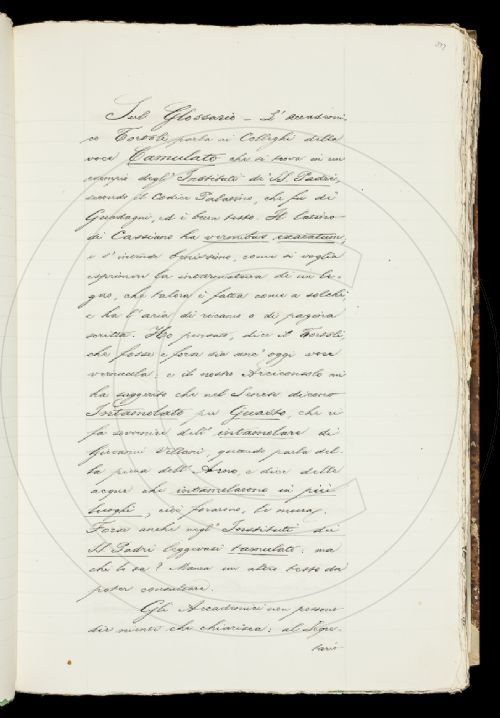 Sul Glossario – L'Accademi-
co Tortoli parla ai Colleghi della
voce Camulato che si trova in un
esempio degl'Instituti di SS. Padri,
secondo il Codice Palatino, che fu di
Guadagni, ed è buon testo. Il latino
di Cassiano ha vermibus exaratum,
e s'intende benissimo, come si voglia
esprimere la intarmatura di un le-
gno, che talora è fatta come a solchi
e ha l'aria di ricamo o di pagina
scritta. Ho pensato, dice il Tortoli,
che fosse e forse sia anc'oggi voce
vernacula: e il nostro Arciconsolo mi
ha suggerito che nel Senese dicono
Intamolato per Guasto, che ci
fa sovvenire dell'intamolare di
Giovanni Villani, quando parla del-
la piena dell'Arno, e dice delle
acque che intamolarono in più
luoghi, cioè forarono, le mura.
Forse anche negl'Instituti dei
SS. Padri leggevasi tamulato: ma
chi lo sa? Manca un altro testo da
poter consultare.
Gli Accademici non possono
dir niente che chiarisca: al Segre-
tario